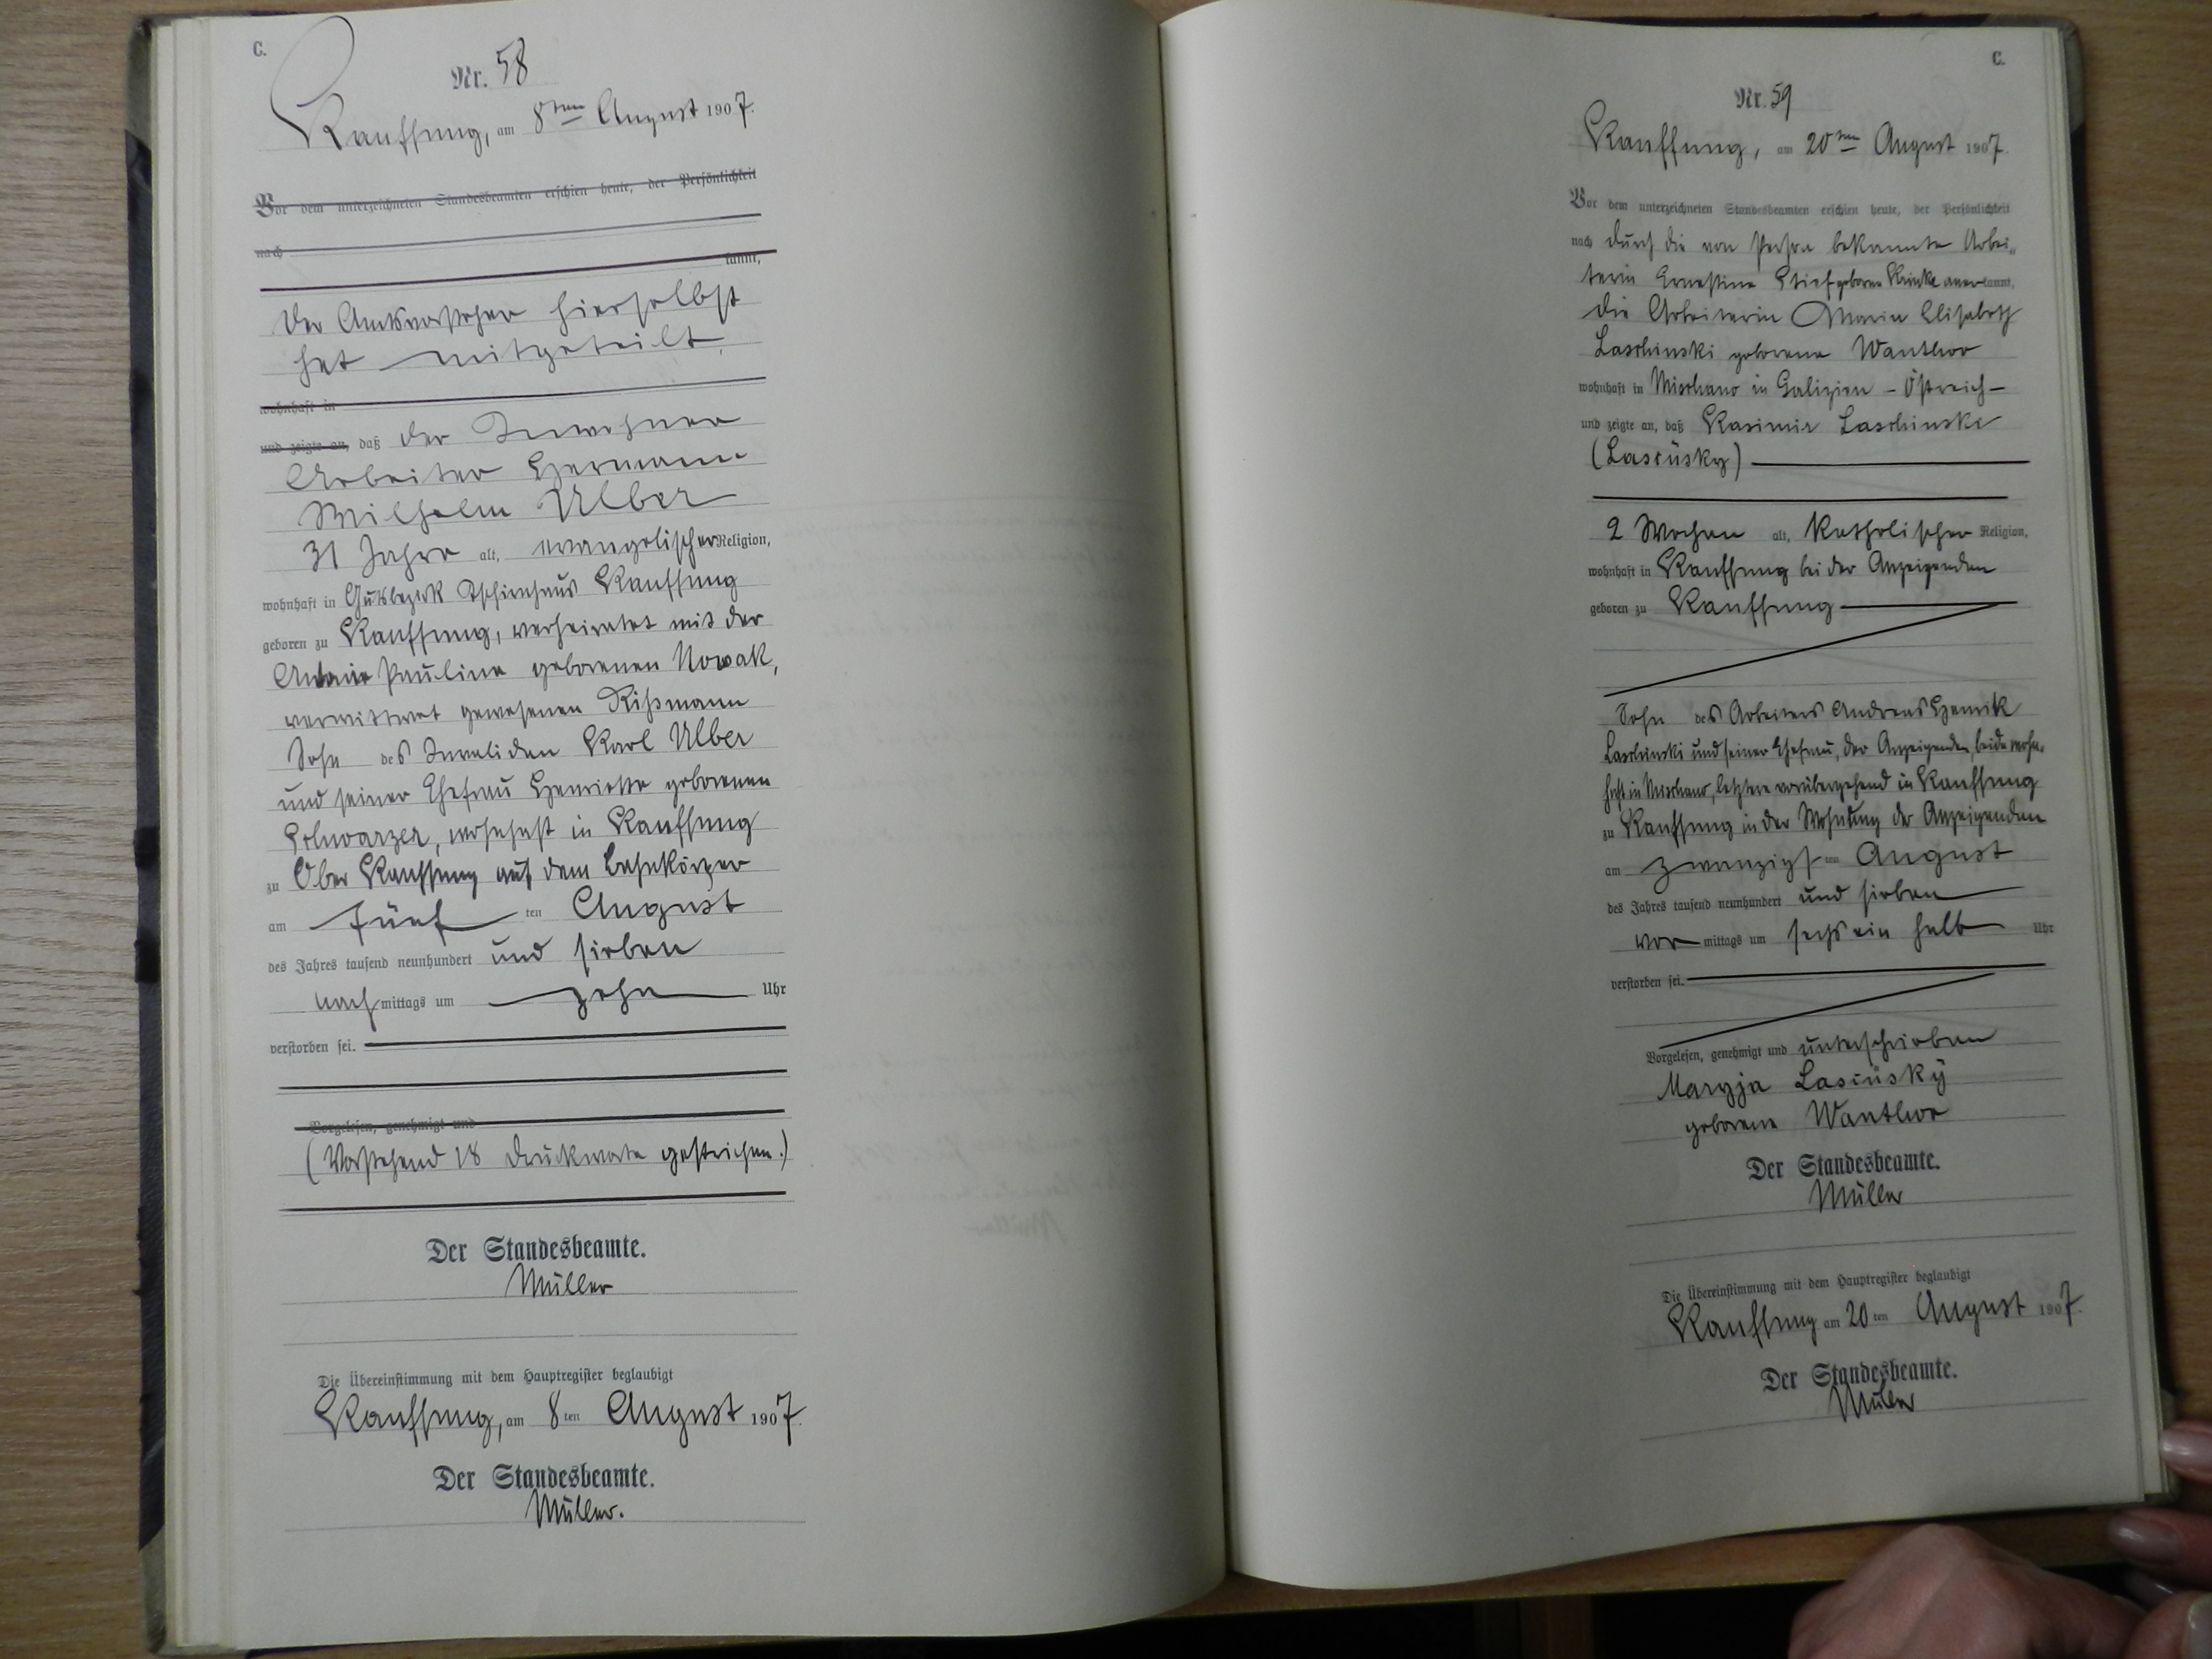 C.
Nr. 58
Kauffung, am 8ten August 1907.
Vor dem unterzeichneten Standesbeamten erschien heute, der Persönlichkeit
nach
kannt,
Der Amtsvorsteher hierselbst
hat mitgeteilt,
wohnhaft in
und zeigte an, daß der Inwohner
Arbeiter Hermann
Wilhelm Ulber
31 Jahre alt, evangelischer Religion,
wohnhaft in Gutsbezirk Tschirnhaus Kauffung
geboren zu Kauffung, verheiratet mit der
Pauline geborenen Nowak,
verwittwet gewesenen Rißmann
Sohn des Invaliden Karl Ulber
und seiner Ehefrau Henriette geborenen
Schwarzer, wohnhaft in Kauffung
zu Ober Kauffung auf dem Bahnkörper
am fünften August
des Jahres tausend neunhundert und sieben
nachmittags um zehn Uhr
verstorben sei.
Vorgelesen, genehmigt und
(Vorstehend 18 Druckworte gestrichen.)
Der Standesbeamte.
Müller
Die Übereinstimmung mit dem Hauptregister beglaubigt
Kauffung, am 8ten August 1907.
Der Standesbeamte.
Müller.
C.
Nr. 59
Kauffung, am 20ten August 1907.
Vor dem unterzeichneten Standesbeamten erschien heute, der Persönlichkeit
nach durch die von Person bekannte Arbei„
terin Ernestine Stief geborene Reinke anerkannt,
die Arbeiterin Maria Elisabeth
Laschinski geborene Wanthor
wohnhaft in Mischano in Galizien – Östreich –
und zeigte an, daß Kasimir Laschinski
(Lasiüsky)
2 Wochen alt, katholischer Religion,
wohnhaft in Kauffung bei der Anzeigenden
geboren zu Kauffung
Sohn des Arbeiters Andreas Henrik
Laschinski und seiner Ehefrau, der Anzeigenden, beide wohn„
haft in Mischano, letztere vorübergehend in Kauffung
zu Kauffung in der Wohnung der Anzeigenden
am zwanzigsten August
des Jahres tausend neunhundert und sieben
vormittags um sechs ein halb Uhr
verstorben sei.
Vorgelesen, genehmigt und unterschrieben
Maryja Lasiüsky
geborene Wanthor
Der Standesbeamte.
Müller
Die Übereinstimmung mit dem Hauptregister beglaubigt
Kauffung am 20ten August 1907.
Der Standesbeamte.
Müller